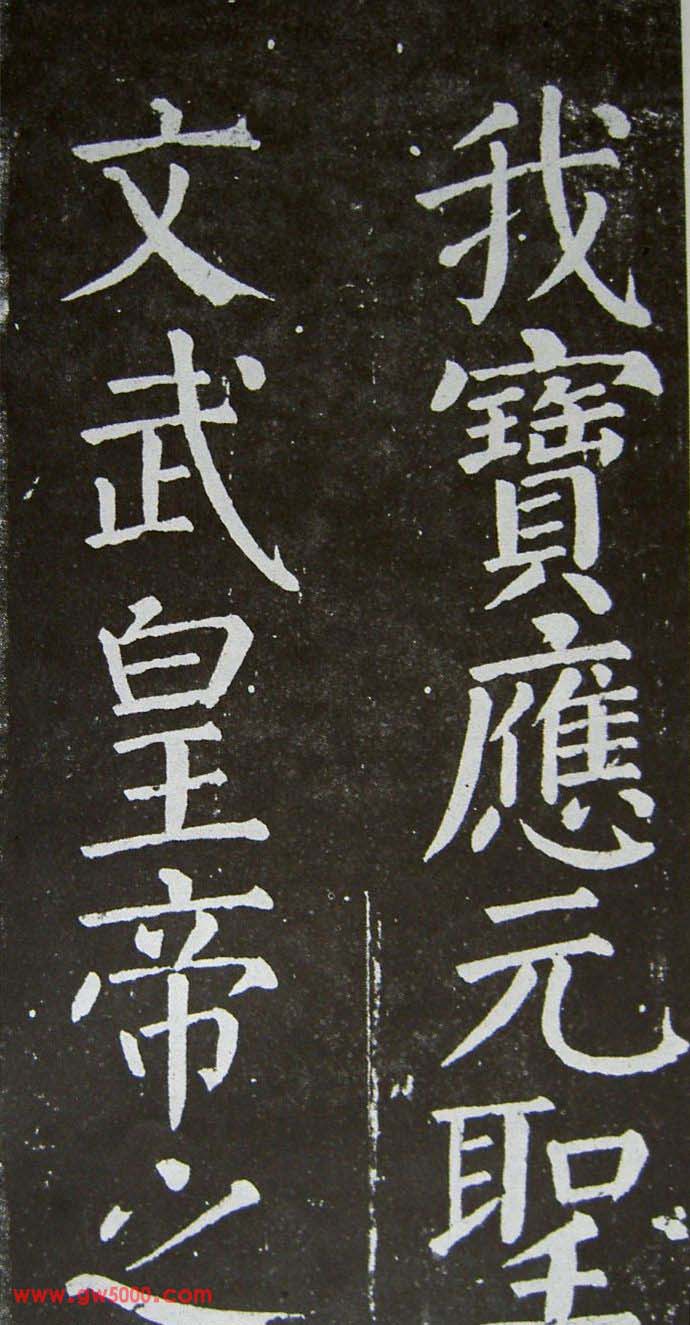 我寶應元聖
文武皇帝之
www.gw5000.com